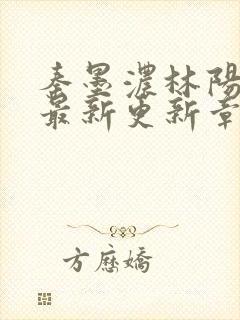 秦墨濃林陽
最新更新章
方應嬌